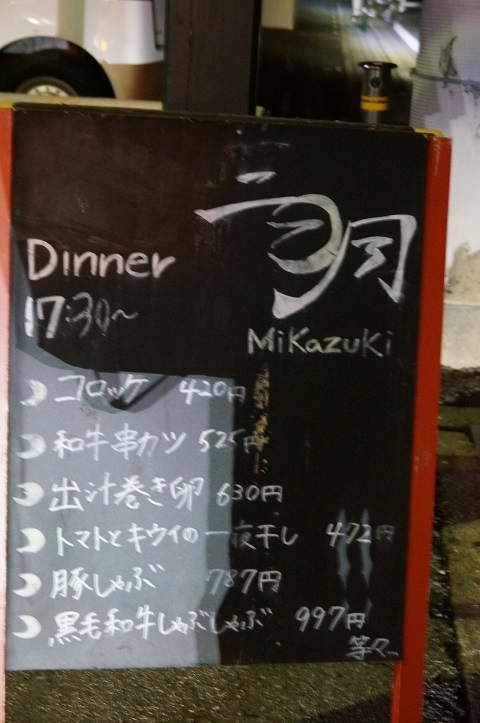 三日月
Dinner
17:30~
MiKazuKi
コロッケ 420円
和牛串カツ 525円
出汁巻き卵 630円
トマトとキウイの一夜干し 472円
豚しゃぶ 787円
黒毛和牛しゃぶしゃぶ 997円
等々